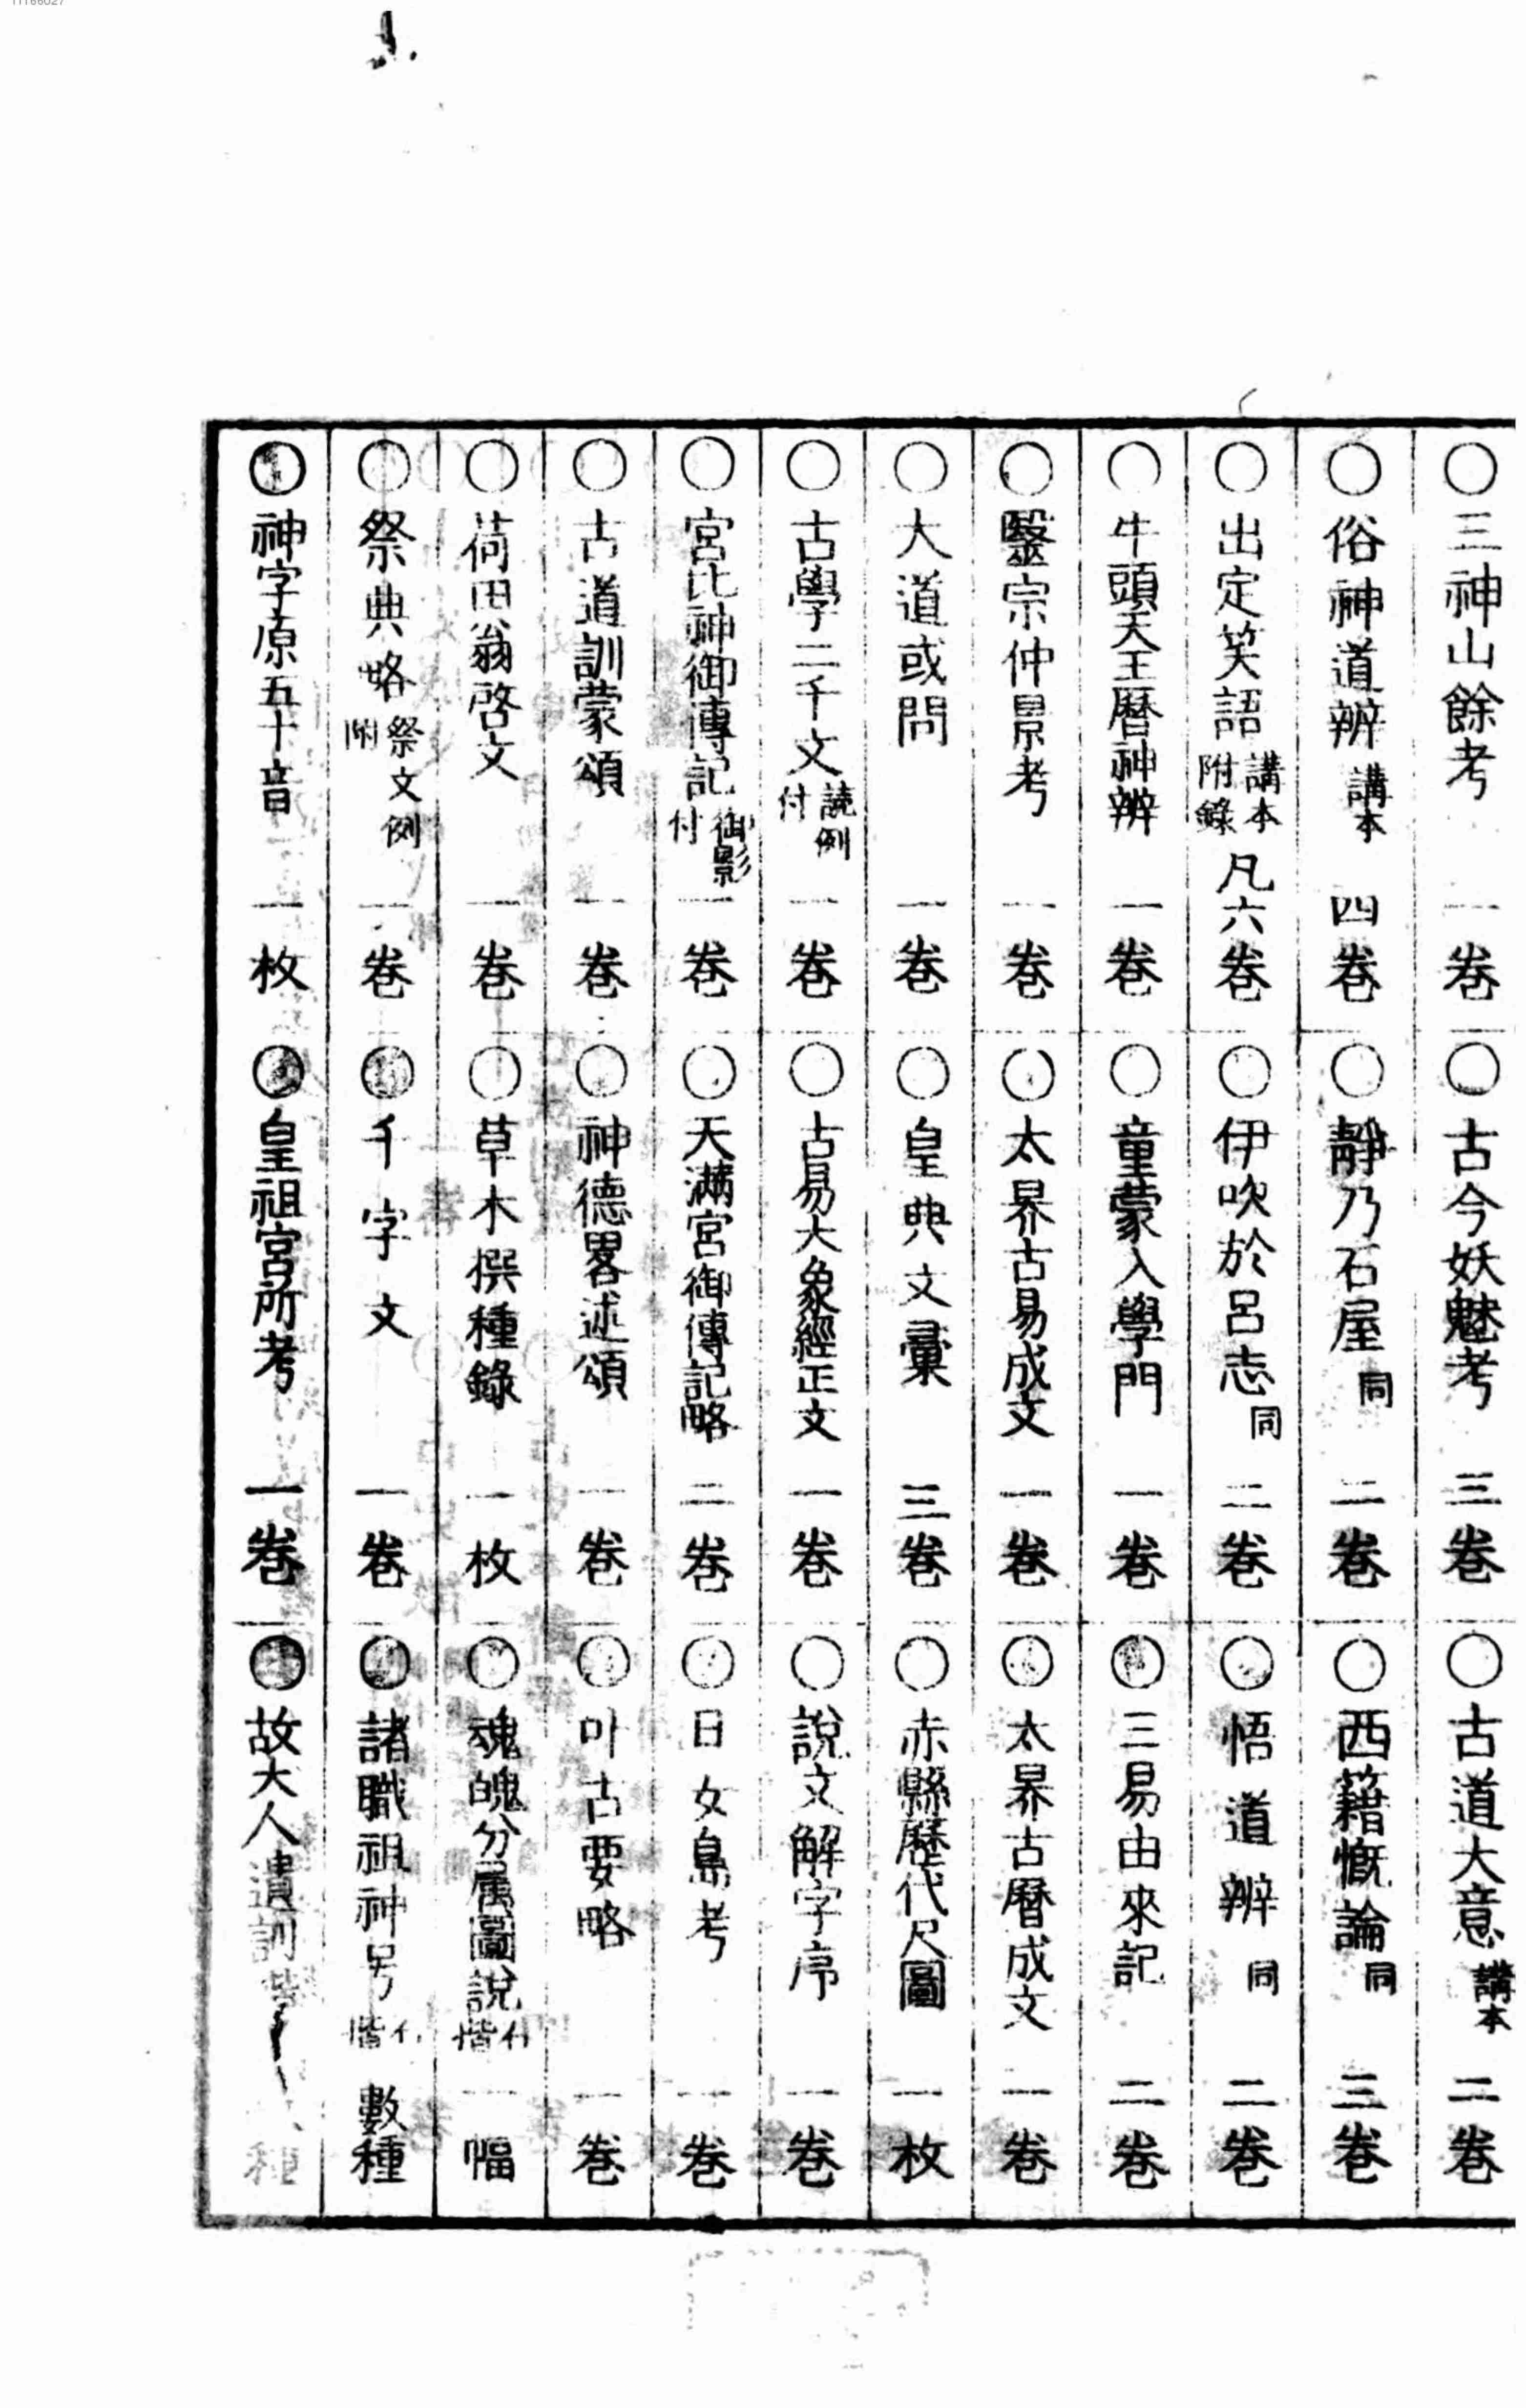 ○三神山餘考 一巻 ○古今妖魅考 三巻 ○古道大意 講本 二巻
○俗神道辨 講本 四巻 ○靜乃石屋 同 二巻 ○西籍慨論 同 三巻
○出定笑語 講本附錄 凡六巻 ○伊吹於呂志 同 二巻 ○悟道辨 同 二巻
○牛頭天王曆神辨 一巻 ○童蒙入學門 一巻 ○三易由來記 二巻
○醫宗仲景考 一巻 ○太昦古易成文 一巻 ○太昦古曆成文 一巻
○大道或問 一巻 ○皇典文彙 三巻 ○赤縣歷代尺圖 一枚
○古學二千文 読例付 一巻 ○古易大象經正文 一巻 ○說文解字序 一巻
○宮比神御傳記 御影付 一巻 ○天滿宮御傳記略 二巻 ○日女島考 一巻
○古道訓蒙頌 一巻 ○神德畧述頌 一巻 ○叶古要略 一巻
○荷田翁啓文 一巻 ○草木撰種錄 一枚 ○魂魄分属圖說 一幅
○祭典略 祭文例附 一巻 ○千字文 一巻 ○諸職祖神号 數種
○神字原五十音 一枚 ○皇祖宮所考 一巻 ○故大人遺訓 種